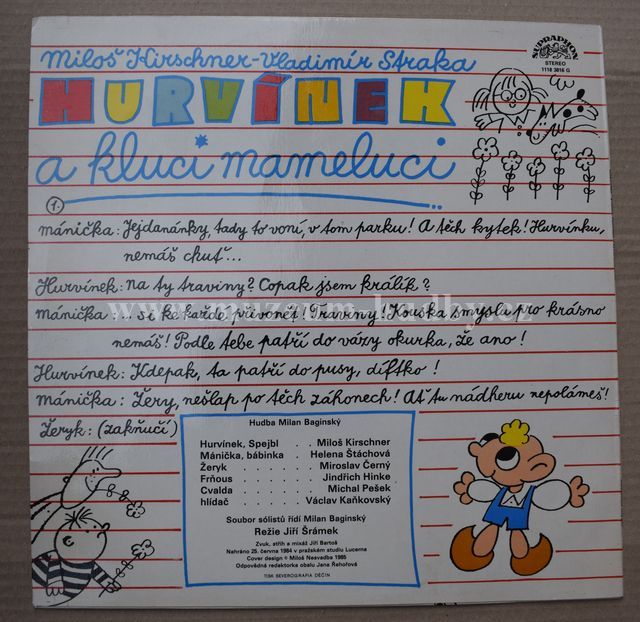 Miloš Kirschner-Vladimír Straka
SUPRAPHON
STEREO
1118 3816 G
HURVÍNEK
a kluci mameluci
1.
mánička: Jejdanánky, tady to voní, v tom parku! A těch kytek! Hurvínku,
nemáš chuť...
Hurvínek: Na ty traviny? Copak jsem králík?
mánička: ... si ke každé přivonět! Traviny! Kouska smyslu pro krásno
nemáš! Podle tebe patří do vázy okurka, že ano!
Hurvínek: Kdepak, ta patří do pusy, díftko!
Mánička: Žery, nešlap po těch záhonech! Ať tu nádheru nepolámeš!
Žeryk: (zakňučí)
www.muzeum-hudby.cz
Hudba Milan Baginský
Hurvínek, Spejbl . . Miloš Kirschner
Mánička, bábinka . Helena Štáchová
Žeryk . . . . . Miroslav Černý
Frňous . . . . Jindřich Hinke
Cvalda . . . . . Michal Pešek
hlídač . . . . Václav Kaňkovský
Soubor sólistů řídí Milan Baginský
Režie Jiří Šrámek
Zvuk, střih a mixáž Jiří Bartoš
Nahráno 25. června 1984 v pražském studiu Lucerna
Cover design © Miloš Nesvadba 1985
Odpovědná redaktorka obalu Jana Řehořová
TISK SEVEROGRAFIA DĚČÍN